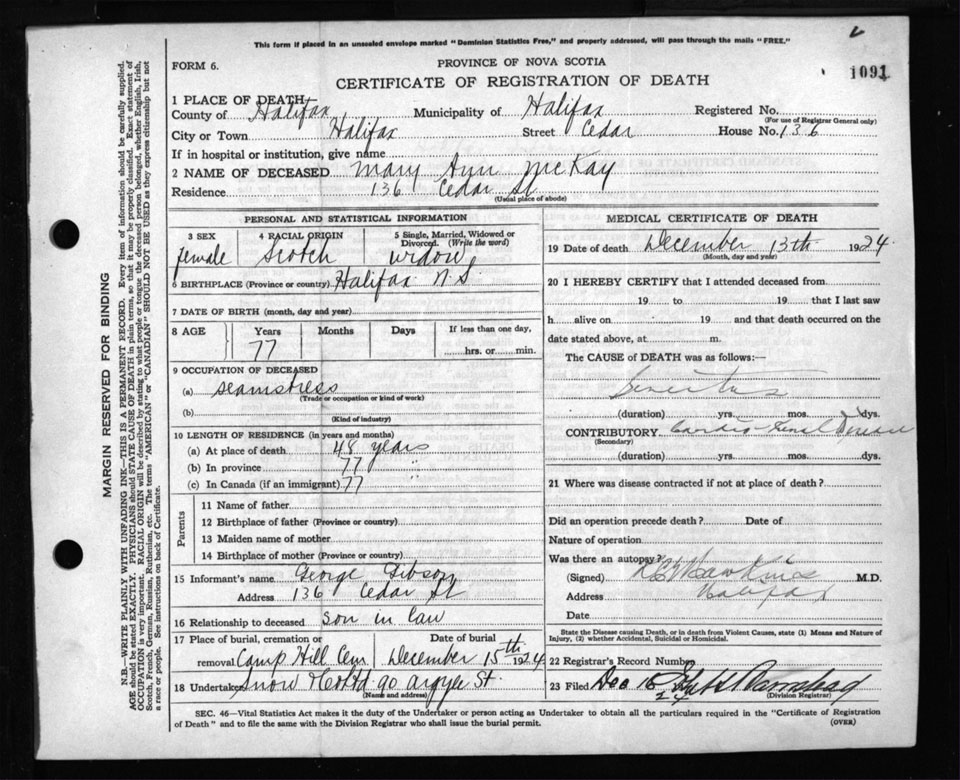 This form if placed in an unsealed envelope marked "Dominion Statistics Free," and properly addressed, will pass through the mails "FREE."
FORM 6.
PROVINCE OF NOVA SCOTIA
CERTIFICATE OF REGISTRATION OF DEATH
1091
1 PLACE OF DEATH
County of Halifax Municipality of Halifax Registered No.
(For use of Registrar General only)
City or Town Halifax Street Cedar House No. 136
If in hospital or institution, give name
2 NAME OF DECEASED Mary Ann McKay
Residence 136 Cedar St
(Usual place of abode)
PERSONAL AND STATISTICAL INFORMATION
3 SEX 4 RACIAL ORIGIN 5 Single, Married, Widowed or Divorced. (Write the word)
female Scotch widow
6 BIRTHPLACE (Province or country) Halifax N.S
7 DATE OF BIRTH (month, day and year)
8 AGE Years Months Days If less than one day,
77 hrs. or min.
9 OCCUPATION OF DECEASED
(a) seamstress
(Trade or occupation or kind of work)
(b)
(Kind of industry)
10 LENGTH OF RESIDENCE (in years and months)
(a) At place of death 48 years
(b) In province 77 "
(c) In Canada (if an immigrant) 77
Parents
11 Name of father
12 Birthplace of father (Province or country)
13 Maiden name of mother
14 Birthplace of mother (Province or country)
15 Informant's name George Gibson
Address 136 Cedar St
16 Relationship to deceased son in law
17 Place of burial, cremation or removal Camp Hill Cem
Date of burial December 15th 1924
18 Undertaker Snow & Co Ltd 90 Argyle St.
(Name and address)
MEDICAL CERTIFICATE OF DEATH
19 Date of death December 13th 1924
(Month, day and year)
20 I HEREBY CERTIFY that I attended deceased from
19 to 19 that I last saw
h alive on 19 and that death occurred on
date stated above, at m.
The CAUSE of DEATH was as follows:—
(duration) yrs. mos. dys.
CONTRIBUTORY Cardio-renal disease
(Secondary)
(duration) yrs. mos. dys.
21 Where was disease contracted if not at place of death?
Did an operation precede death? Date of
Nature of operation
Was there an autopsy?
(Signed) Hawkins M.D.
Address Halifax
Date
State the Disease causing Death, or in death from Violent Causes, state (1) Means and Nature of Injury, (2) whether Accidental, Suicidal or Homicidal.
22 Registrar's Record Number
23 Filed Dec 16
(Division Registrar)
SEC. 46—Vital Statistics Act makes it the duty of the Undertaker or person acting as Undertaker to obtain all the particulars required in the "Certificate of Registration
of Death" and to file the same with the Division Registrar who shall issue the burial permit.
(OVER)
MARGIN RESERVED FOR BINDING
N.B.—WRITE PLAINLY WITH UNFADING INK—THIS IS A PERMANENT RECORD. Every item of information should be carefully supplied.
AGE should be stated EXACTLY. PHYSICIANS should STATE CAUSE OF DEATH in plain terms, so that it may be properly classified. Exact statement of
OCCUPATION is very important. RACIAL ORIGIN will be described by stating to what people or tongue the deceased person belonged, whether English, Irish,
Scotch, French, German, Russian, Ruthenian, etc. The terms "AMERICAN" or "CANADIAN" SHOULD NOT BE USED as they express citizenship but not
a race or people. See instructions on back of Certificate.